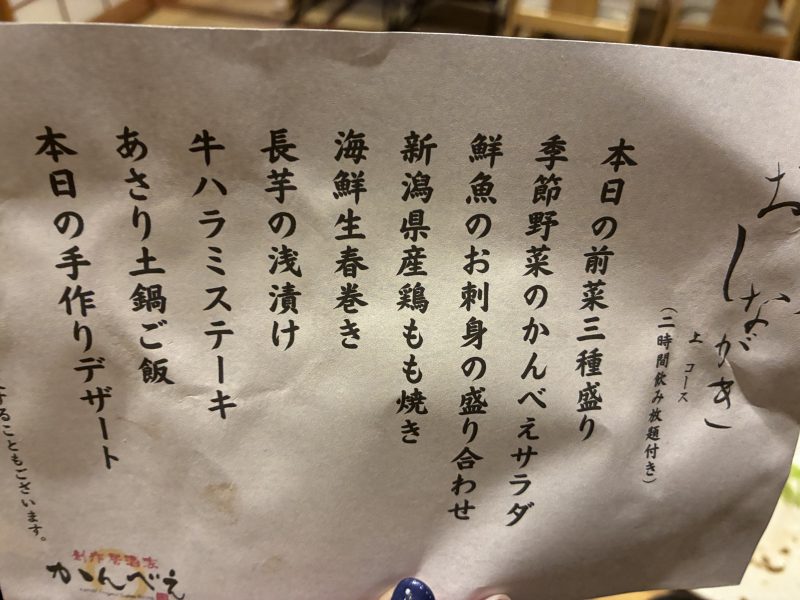 おしながき
上 コース
(二時間飲み放題付き)
本日の前菜三種盛り
季節野菜のかんべえサラダ
鮮魚のお刺身の盛り合わせ
新潟県産鶏もも焼き
海鮮生春巻き
長芋の浅漬け
牛ハラミステーキ
あさり土鍋ご飯
本日の手作りデザート
することもございます。
創作居酒家
かんべえ